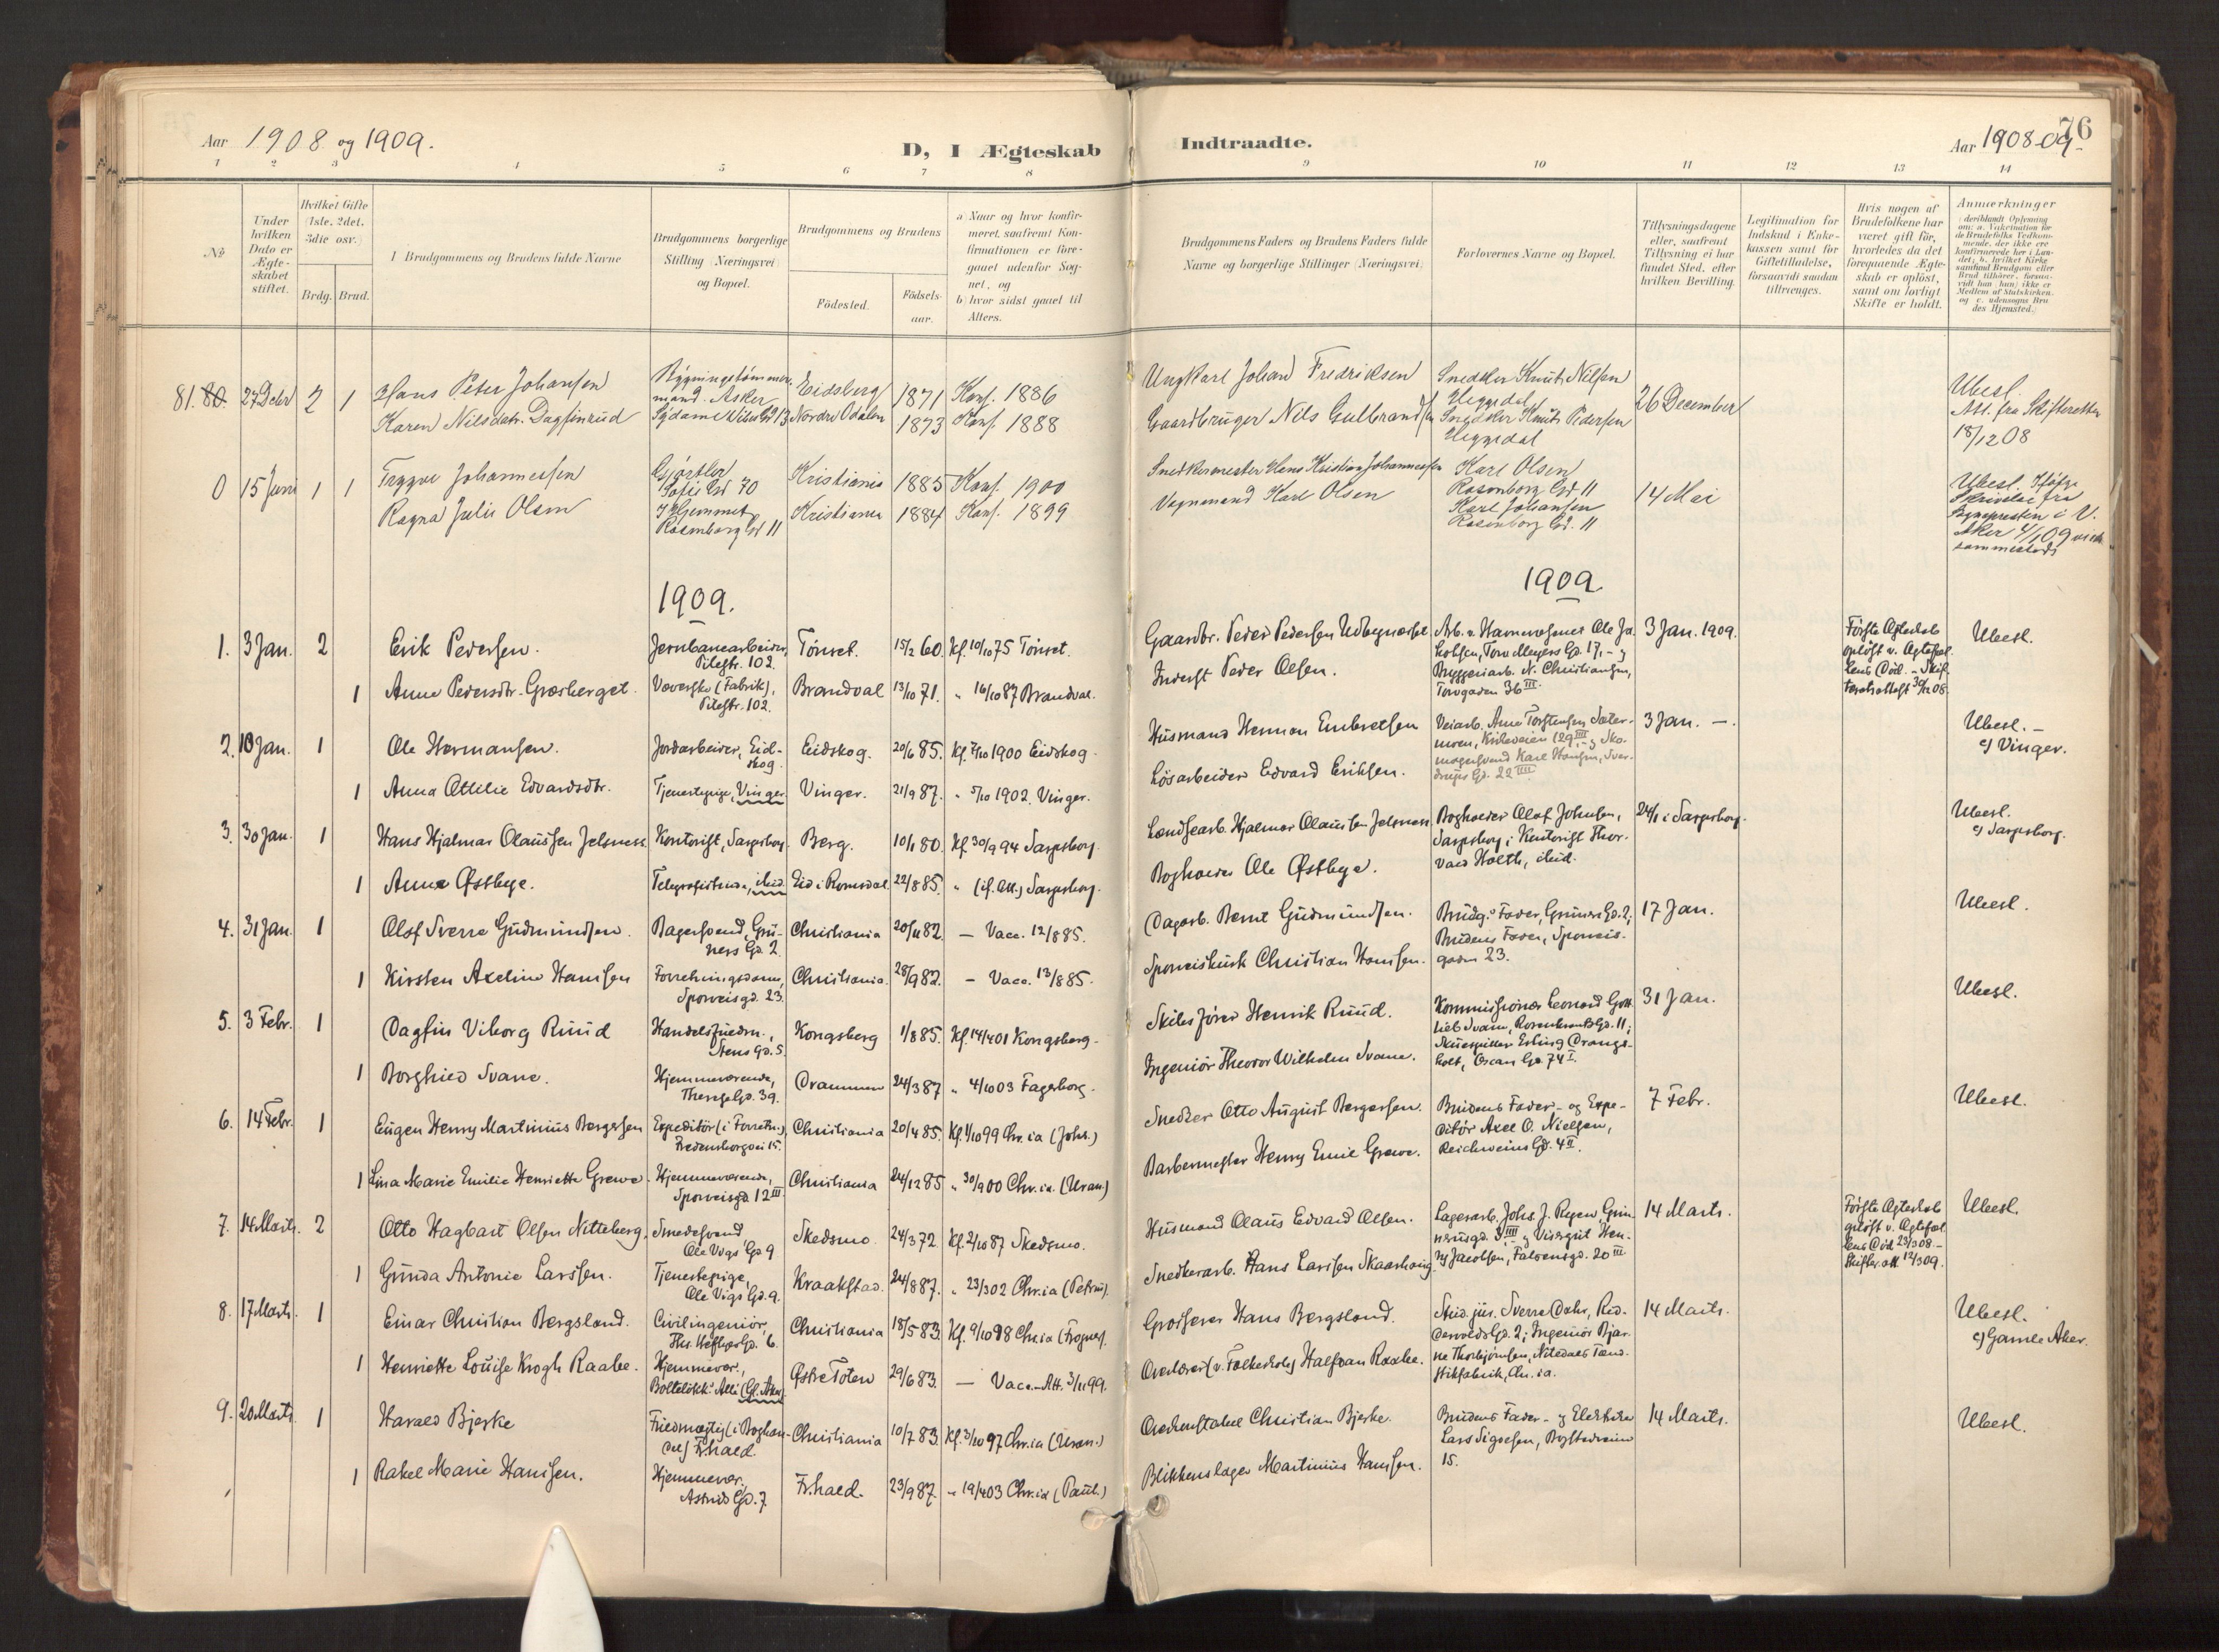 Aar 1908 og 1909.
D, I Ægteskab
Indtraadte.
76
Aar 1908-09.
1 2 3 4 5 6 7 8 9 10 11 12 13 14
No
Under hvilken Dato er Ægteskabet stiftet.
Hvilket Gifte (1ste, 2det, 3die osv.)
Brdg. Brud.
I Brudgommens og Brudens fulde Navne
Brudgommens borgerlige Stilling (Næringsvei) og Bopæl.
Brudgommens og Brudens
Födested.
Födselsaar.
a) Naar og hvor konfirmeret, saafremt Konfirmationen er foregaaet udenfor Sognet, og
b) hvor sidst gaaet til Alters.
Brudgommens Faders og Brudens Faders fulde Navne og borgerlige Stillinger (Næringsvei)
Forlovernes Navne og Bopæl.
Tillysningsdagene eller, saafremt Tillysning ei har fundet Sted, efter hvilken Bevilling.
Legitimation for Indskud i Enkekassen samt for Giftetilladelse, forsaavidt saadan tiltrænges.
Hvis nogen af Brudefolkene har været gift för, hvorledes da det foregaaende Ægteskab er oplöst, samt om lovligt Skifte er holdt.
Anmærkninger (deriblandt Oplysning om: a. Vakcination for de Brudefolks Vedkommende, der ikke ere konfirmerede her i Landet; b. hvilket Kirkesamfund Brudgom eller Brud tilhörer, forsaavidt han (hun) ikke er Medlem af Statskirken, og c. udensogns Brudes Hjemsted.)
81. 80. 27 Debr 2 1 Hans Peter Johansen
mand. Asker Eidsberg 1871 Konf. 1886 Ungkarl Johan Fredriksen Snedker Knut Nilsen Heggedal 26 December Ubesl.
Att. fra Skifteretten 18/12 08
Karen Nilsdatr. Dagfinrud Nordre Odalen 1873 Konf. 1888 Gaardbruger Nils Gulbrandsen Snedker Knut Pedersen Heggedal
0 15 Juni 1 1 Trygve Johannessen Gjørtler Sofie Gd 70 Kristiania 1885 Konf. 1900 Snedkermester Hans Kristian Johannessen Karl Olsen Rosenborg Gd. 11 14 Mai Ubesl.
Ragna Julie Olsen I Hjemmet Rosenborg Gd 11 Kristiania 1884 Konf. 1899 Vognmand Karl Olsen Karl Johansen Rosenborg Gd. 11
1909.
1909
1. 3 Jan. 2 Erik Pedersen. Jernbanearbeider, Pilestr. 102. Tönset. 15/2 60. Kf. 10/10 75 Tönset. Gaardbr. Peder Pedersen Arb. v. Havnevæsenet Ole Jakobsen, Torv Meyers Gd. 17, - og 3 Jan. 1909. Förste Ægteskab oplöst v. Ægtefællens Död. - Skifteretsattest 30/12 08. Ubesl.
1 Anna Pedersdtr. Græsberget. Væverske (Fabrik), Pilestr. 102. Brandval 13/10 71. " 16/10 87 Brandval. Inderst Peder Olsen. Bryggeriarb. N. Christiansen, Torvgaden 36 III.
2. 10 Jan. 1 Ole Hermansen. Jordarbeider, Eidskog. Eidskog. 20/6 85. Kf. 7/10 1900 Eidskog. Husmand Herman Embretsen Veiarb. Arne Torstensen 3 Jan. - Ubesl. - c) Vinger.
1 Anna Otilie Edvardsdtr. Tjenestepige, Vinger Vinger. 21/9 87. " 5/10 1902. Vinger. Lösarbeider Edvard Eriksen. Skomagersvend Karl Hansen, Sverdrups Gd. 22 IIII.
3. 30 Jan. 1 Hans Hjalmar Olaussen Jelsness Kontorist, Sarpsborg. Berg. 10/1 80. Kf. 30/9 94 Sarpsborg. Landsearb. Hjalmar Olaussen Jelsness. Bogholder Olaf Johnsen, Sarpsborg; Kontorist Thorvald Holth, ibid. 24/1 i Sarpsborg. Ubesl. c) Sarpsborg.
1 Anna Østbye. Telegrafistinde, ibid. Eid i Romsdal 22/8 85. " (if. Att.) Sarpsborg. Bogholder Ole Østbye.
4. 31 Jan. 1 Olaf Sverre Gudmundsen. Bagersvend, Grüners Gd. 2. Christiania 20/11 82. - Vacc. 12/8 85. Dagarb. Bernt Gudmundsen. Brudg.s Fader, Grüners Gd. 2; Brudens Fader, Sporveisgaden 23. 17 Jan. Ubesl.
1 Kirsten Axeline Hansen Forretningsdame, Sporveisgd. 23. Christiania. 28/9 82. - Vacc. 13/8 85. Sporveiskusk Christian Hansen.
5. 3 Febr. 1 Dagfin Viborg Ruud Handelsfuldm., Stens Gd. 5. Kongsberg 1/8 85. Kf. 14/4 01 Kongsberg. Skibsförer Henrik Ruud. Kommissionær Leonard Gottlieb Svane, Rosenkrantz Gd. 11; 31 Jan. Ubesl.
1 Borghild Svane. Hjemmeværende, Therese Gd. 39. Drammen 24/3 87 " 4/10 03 Fagerborg. Ingeniör Theodor Wilhelm Svane. Skuespiller Erling Drangsholt, Oscars Gd. 74 I.
6. 14 Febr. 1 Eugen Henry Martinius Bergersen Expeditör (i Forretn.), Fredensborgvei 15. Christiania 20/4 85. Kf. 1/10 99 Chr.ia (Johs.) Snedker Otto August Bergersen. Brudens Fader - og Expeditör Axel O. Nielsen, Reichweins Gd. 4 II. 7 Febr. Ubesl.
1 Lina Marie Emilie Henriette Grewe. Hjemmeværende, Sporveisgd. 12 III. Christiania 24/12 85 " 30/9 00 Chr.ia. (Uran.) Barbermester Henry Emil Grewe.
7. 14 Marts. 2 Otto Hagbart Olsen Nitteberg. Smedesvend Ole Vigs Gd. 9 Skedsmo. 24/3 72. Kf. 2/10 87 Skedsmo. Husmand Olaus Edvard Olsen. Lagerarb. Johs. J. Ryen, 14 Marts. Förste Ægteskab oplöst v. Ægtefællens Död 23/3 08. - Skifter.att 12/3 09. Ubesl.
1 Gunda Antonie Larssen. Tjenestepige, Ole Vigs Gd. 9. Kraakstad. 24/8 87. " 23/3 02 Chr.ia (Petrus). Snedkerarb. Hans Larssen Skaarhaug. Visergut Henry Jacobsen, Falsensgd. 20 III
8. 17 Marts. 1 Einar Christian Bergsland. Civilingeniör, Ths. Heftyes Gd. 6. Christiania 18/5 83. Kf. 9/10 98 Chr.ia (Frogner). Grosserer Hans Bergsland. Stud. jur. Sverre Dahr, 14 Marts. Ubesl. c) Gamle Aker.
1 Henriette Louise Krogh Raabe. Hjemmevær., Boltelökk.s Allé (Gl. Aker) Østre Toten 29/6 83. - Vacc.-Att. 3/11 99. Overlærer (v. Folkeskole) Halfdan Raabe. Ingeniör Bjarne Thorbjörnsen, Nitedals Tændstikfabrik, Chr.ia.
9. 20 Marts. 1 Harald Bjerke Fuldmægtig (i Boghandel) Fr.hald. Christiania 10/7 83. Kf. 3/10 97 Chr.ia (Uran.) Christian Bjerke. Brudens Fader - og Elektriker Lars Sigvesen, 15. 14 Marts. Ubesl.
1 Rakel Marie Hansen. Hjemmevær. Astrids Gd. 7. Fr.hald. 23/9 87. " 19/4 03 Chr.ia (Paul.) Blikkenslager Martinius Hansen.